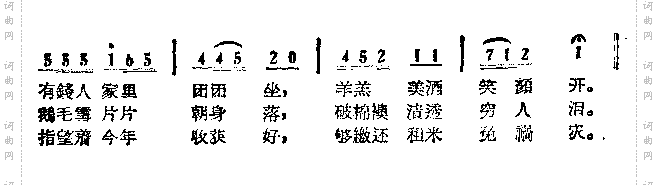 5 5 5 i 6 5 | 4 4 5 2 0 | 4 5 2 1 1 | 7 1 2 1 ‖
有錢人家里 团团坐, 羊羔美酒笑顏开。
鵝毛雪片片 朝身落, 破棉襖湿透穷人泪。
指望着今年 收获好, 够繳还租米免禍灾。
词曲网
词曲网
词曲网
词曲网